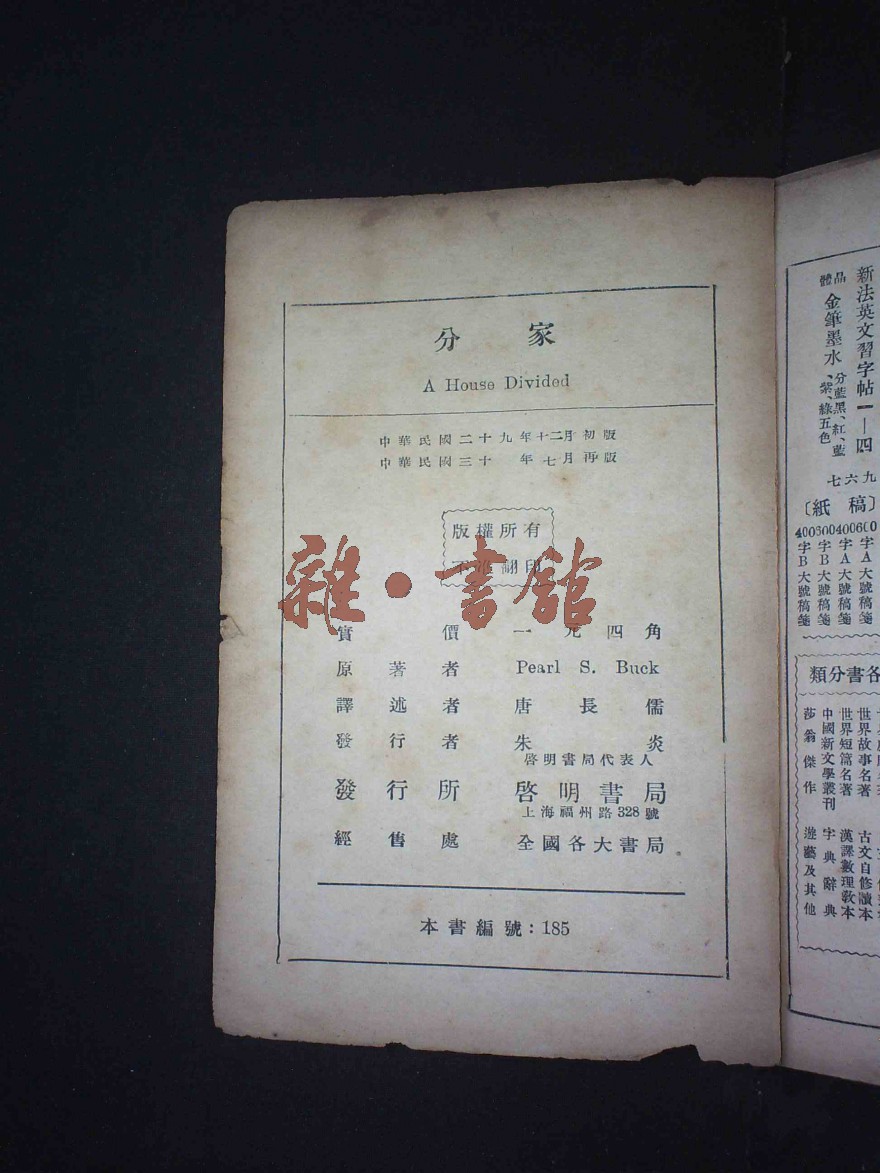 分家
A House Divided
中華民國二十九年十二月初版
中華民國三十 年七月再版
版權所有
不准翻印
雜·書館
實價 一元四角
原著者 Pearl S. Buck
譯述者 唐長儒
發行者 朱炎
啓明書局代表人
發行所 啓明書局
上海福州路328號
經售處 全國各大書局
本書編號：185
新法英文習字帖一—四
品體 金筆墨水 分藍黑、紅、藍、紫、綠五色
七六九
〔紙稿〕
400字B大號稿箋
300字B大號稿箋
400字A大號稿箋
600字A大號稿箋
類分書各
世界故事名著
世界短篇名著
中國新文學叢刊
莎翁傑作
古文自修讀本
漢譯數理教本
字典辭典
遊藝及其他